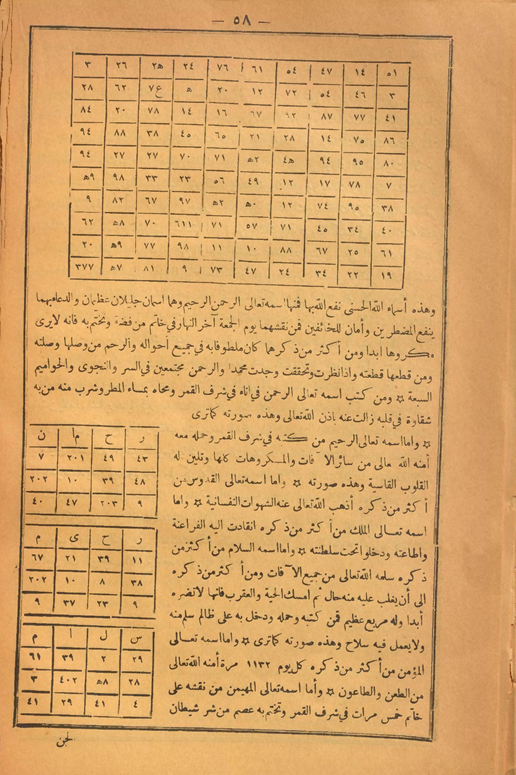 — ٥٨ —
٥١ ١٤ ٤٧ ٥٤ ٦١ ٧٦ ٢٤ ٢ھ ٢٦ ٣
٣ ٤٦ ٥٤ ٧٢ ١٢ ٢٠ ھ ٧ع ٦٢ ٢٨
٤١ ٧٧ ٨٧ ٩٢ ٦٧ ١٦ ١٤ ٧٨ ٢٠ ٨٤
٨٦ ٧٥ ١٤ ٢٨ ٢١ ٦٥ ٤٥ ٣٨ ٨٨ ٩٤
٨٠ ٩٥ ٩٤ ٤ھ ٢ھ ٧١ ٧٠ ٢٧ ٢٧ ٩٤
٧ ٧٨ ١٧ ١٢ ٤٩ ٥٦ ٢٣ ٣٣ ٩٨ ٩ھ
٣٨ ٩٥ ٧٤ ١٢ ٠ھ ٢ھ ٩٧ ٦٧ ٨٢ ٩
٤٠ ٣٤ ٤٥ ٧١ ٥٧ ٧١ ٦١١ ٧٠ ٨ھ ٦٢
٦١ ٢٥ ٦٧ ٨٨ ١٠ ١١ ٩٨ ٧٧ ٩ھ ٢٠
١٩ ٢٢ ٣٤ ٢٤ ٤٧ ٧٣ ٩ ٨١ ٧ھ ٣٧٧
وهذه أسماء الله الحسنى نفع الله بها فمنها اسمه تعالى الرحمن الرحيم وهما اسمان جليلان عظيمان والدعاء بهما
ينفع المضطرين وأمان للخائفين فمن نقشهما يوم الجمعة آخر النهار في خاتم من فضة وتختم به فانه لا يرى
مكروها ابدا ومن أكثر من ذكرهما كان ملطوفا به في جميع أحواله والرحم من وصلها وصلته
ومن قطعها قطعته واذا نظرت وتحققت وجدت محمدا والرحمن مجتمعين في السر والنجوى والحواميم
السبعة ۞ ومن كتب اسمه تعالى الرحمن في اناء في شرف القمر ومحاه بماء المطر وشرب منه من به
شقاوة في قلبه زالت عنه باذن الله تعالى وهذه صورته كما ترى
۞ واما اسمه تعالى الرحيم من كتبه في شرف القمر وحمله معه
أمنه الله تعالى من سائر الآفات والمكروهات كلها وتلين له
القلوب القاسية وهذه صورته ۞ واما اسمه تعالى القدوس من
أكثر من ذكره أذهب الله تعالى عنه الشهوات النفسانية ۞ واما
اسمه تعالى الملك من أكثر من ذكره انقادت اليه الفراعنة
وأطاعته ودخلوا تحت سلطنته ۞ واما اسمه السلام من أكثر من
ذكره سلمه الله تعالى من جميع الآفات ومن أكثر من ذكره
الى أن يغلب عليه منه حال ثم امسك الحية والعقرب فانها لا تضره
أبدا وله مربع عظيم فمن كتبه وحمله ودخل به على ظالم سلم منه
ولا يعمل فيه سلاح وهذه صورته كما ترى ۞ واما اسمه تعالى
المؤمن من أكثر من ذكره كل يوم ١١٣٢ مرة أمنه الله تعالى
من الطعن والطاعون ۞ وأما اسمه تعالى المهيمن من نقشه على
خاتم خمس مرات في شرف القمر وتختم به عصم من شر شيطان
ر ح ما ن
٤٣ ٤٩ ٢٠١ ٧
٤٨ ٣٩ ١٠ ٢٠٢
٩ ٢٠٣ ٤٧ ٤٠
ر ح ى م
١١ ٣٩ ٢١ ٦٧
٣٨ ٨ ١٠ ٢٠٢
٩ ٢٣ ٣٧ ٩
س ل ا م
٢٩ ٢ ٣٩ ٦١
٢٨ ٨ھ ٤٠٢ ٣
٤ ٤١ ٢٩ ٤١
لجن